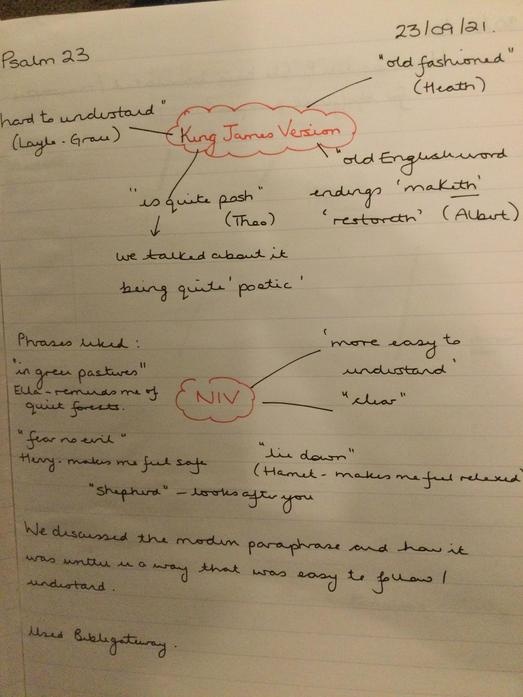 23/09/21.
Psalm 23
"old fashioned"
(Heath)
hard to understand"
(Layla-Grace)
King James Version
"old English word
endings 'maketh'
'restoreth' (Albert)
"is quite posh"
(Theo)
we talked about it
being quite 'poetic'
Phrases liked:
"in green pastures"
Ella - reminds me of
quiet forests.
'more easy to
understand'
NIV
"clear"
"fear no evil"
Henry - makes me feel safe
"lie down"
(Hamet - makes me feel relaxed"
"Shepherd" - looks after you
We discussed the modern paraphrase and how it
was written in a way that was easy to follow /
understand.
Used Biblegateway.